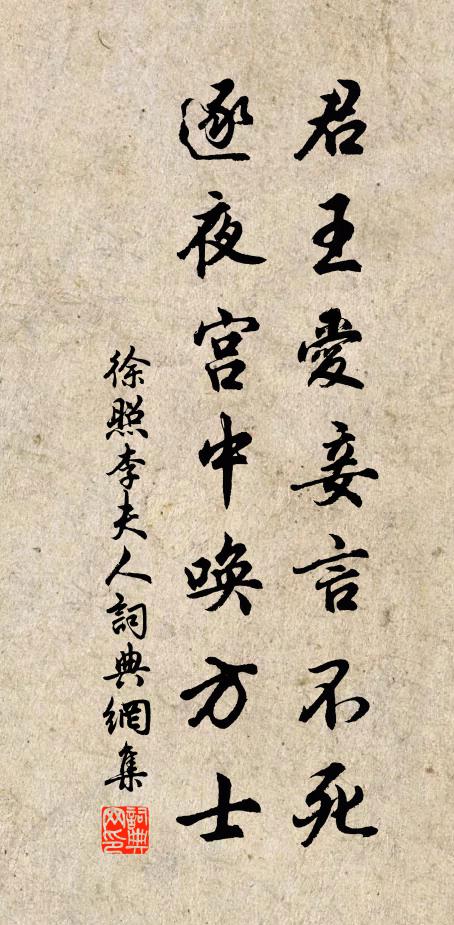 君王愛妾言不死
逐夜宫中喚方士
徐照李夫人詞典網集
詞典
网印